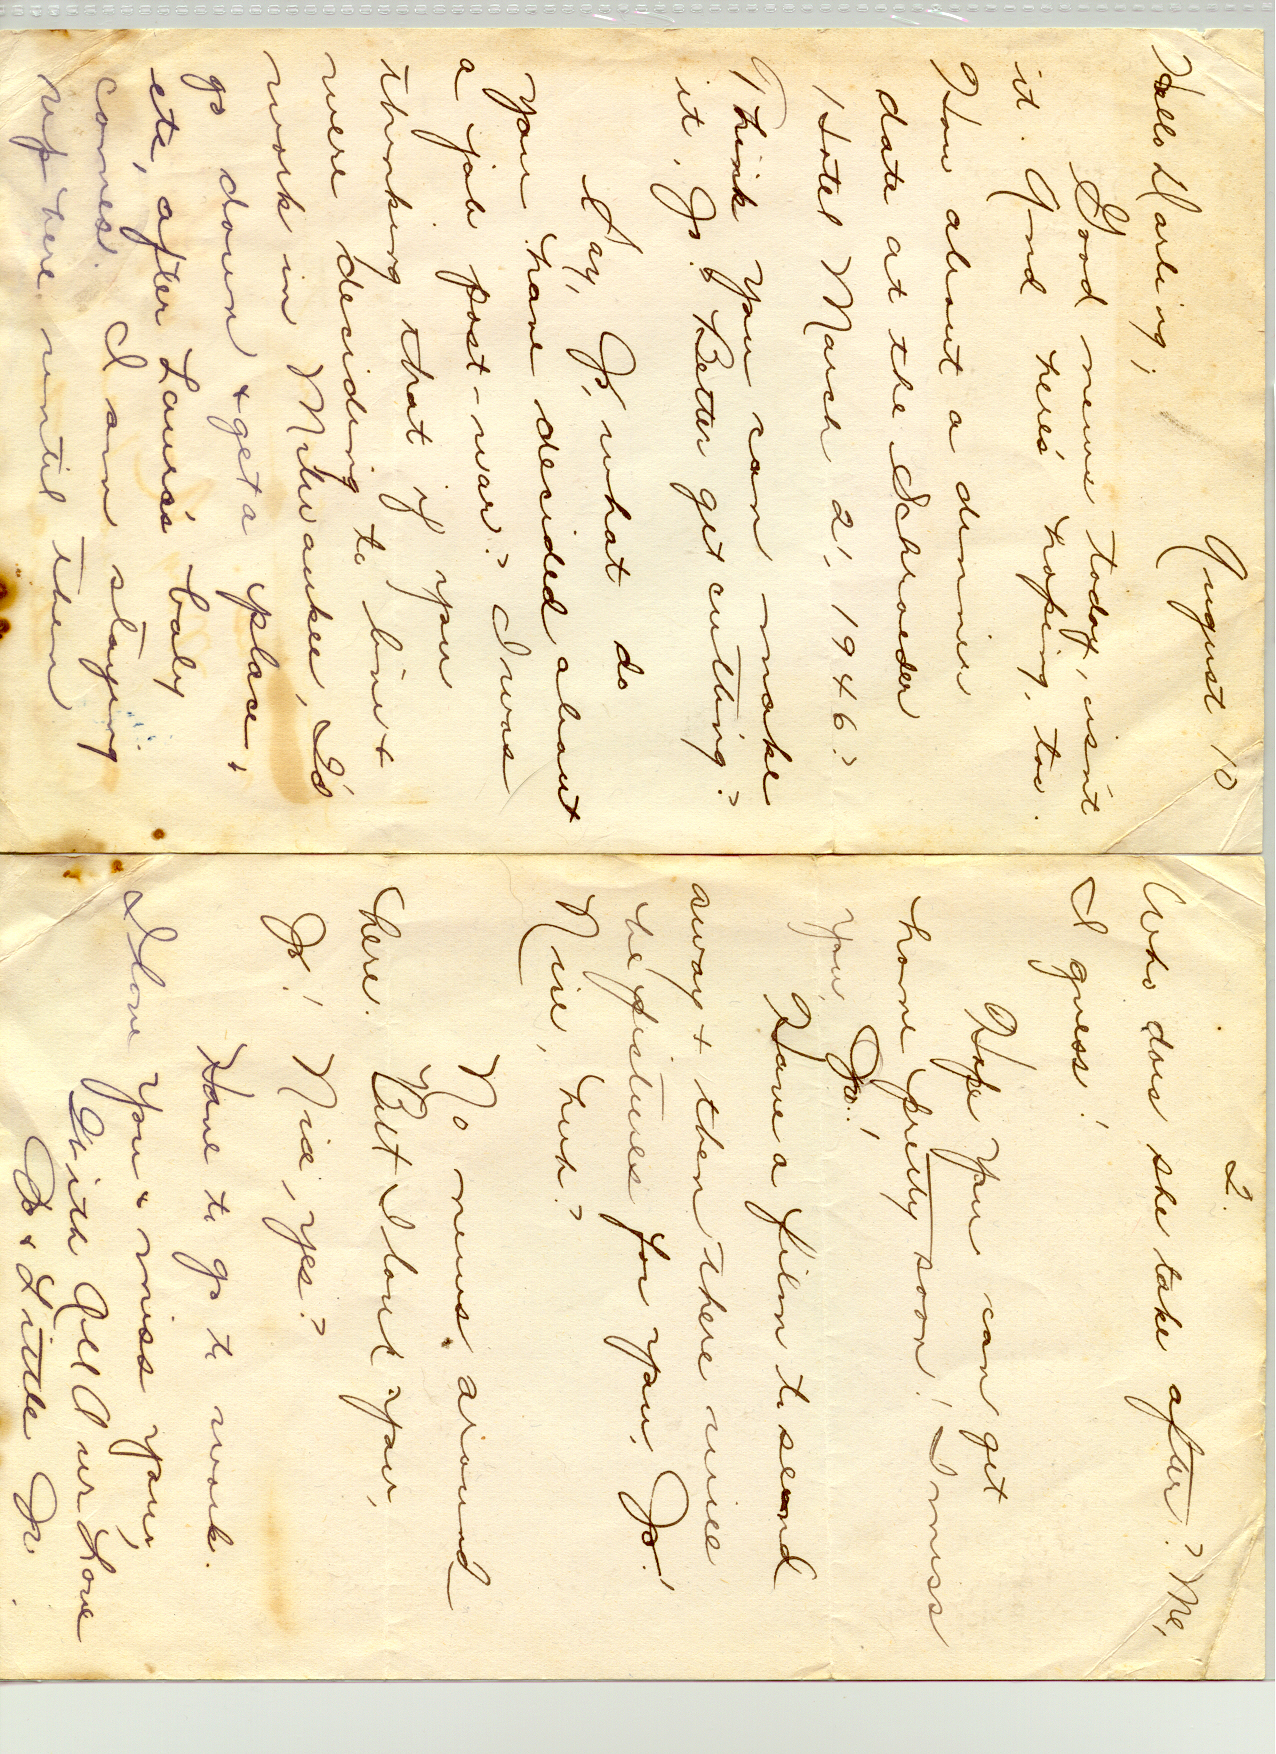 August 10
Hello Darling;
Good news today, isn't
it. And here's hoping, too.
How about a dinner
date at the Schroeder
Hotel March 21, 1946?
Think you can make
it, Jo? Better get cutting?
Say, Jo, what do
you have decided about
a job post-war? I was
thinking that if you
were deciding to live +
work in Milwaukee, I'd
go down + get a place,
etc, after Laur's baby
comes. I am staying
up here until then
2.
Who does she take after? Me,
I guess!
Hope you can get
home pretty soon! I miss
you, Jo!
Have a film to send
away + then there will
be pictures for you, Jo!
Nice, huh?
No news around
here. But I love you,
Jo! Nice, yes?
Have to go to work.
I love you + miss you,
With All Our Love
Jo + Little Jo.